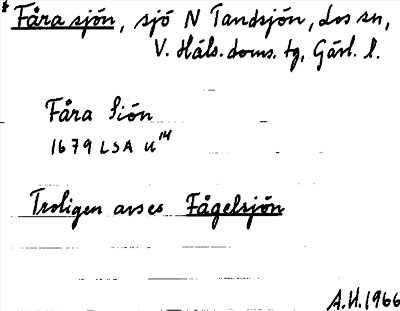 * Fårasjön, sjö N Tandsjön, Los sn,
V. Häls. doms. tg, Gävl. l.
Fåra Siön
1679 LSA U 14
Troligen avses Fågelsjön
A.H. 1966